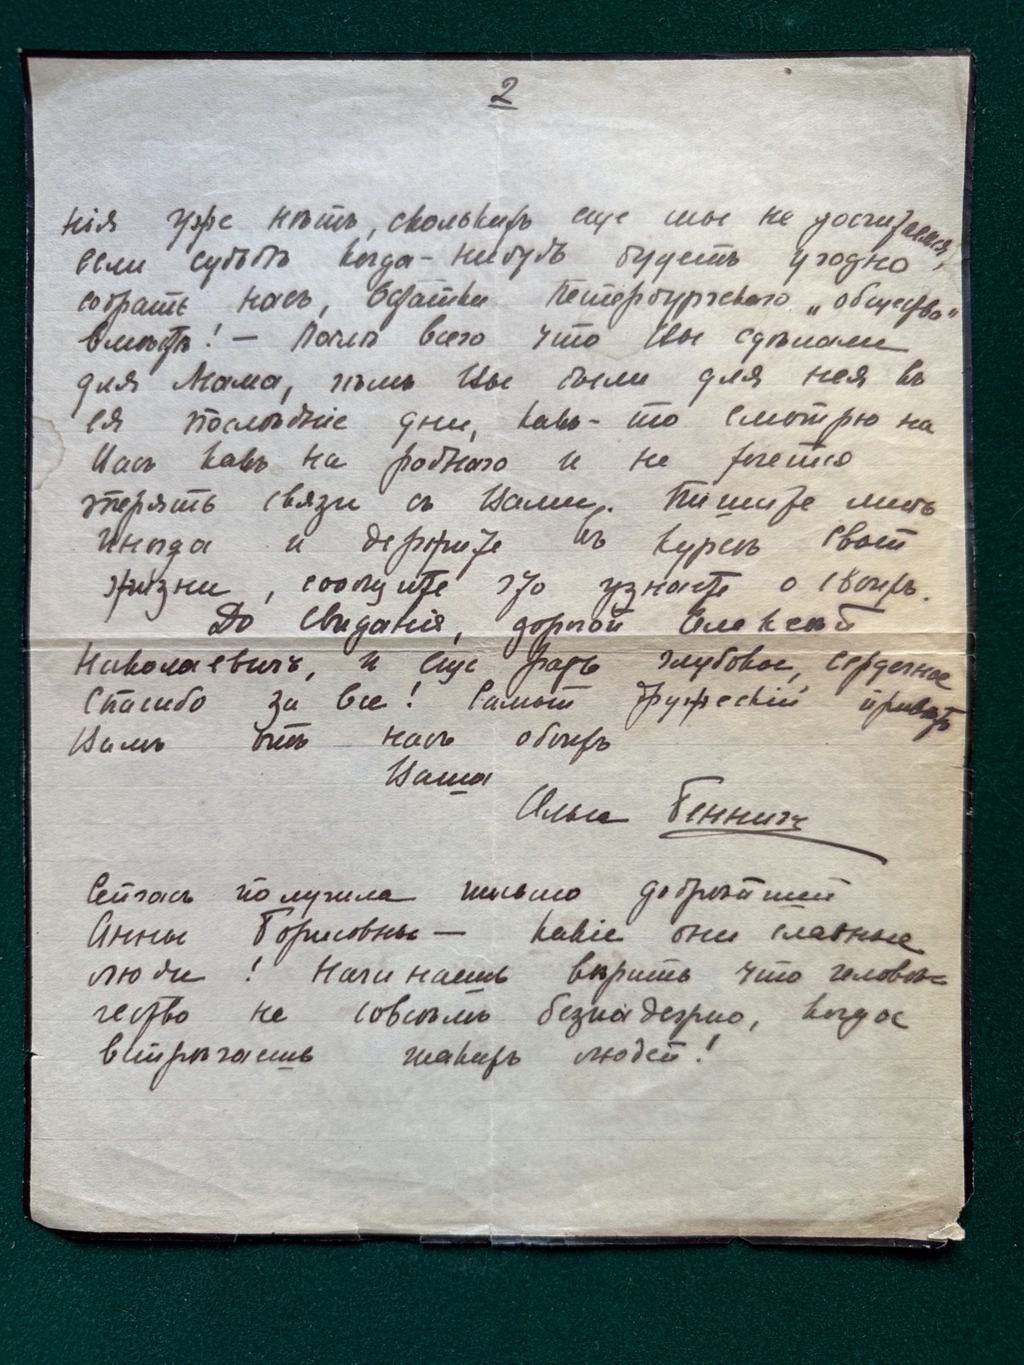 2
нія уже нѣтъ, сколькихъ еще мы не досчитаемся,
если судьбѣ когда-нибудь будетъ угодно
собрать насъ, остатки Петербургскаго „общества"
вмѣстѣ! — Послѣ всего что Вы сдѣлали
для Мама, чѣмъ Вы были для нея въ
ея послѣдніе дни, какъ-то смотрю на
Васъ какъ на родного и не хочется
терять связи съ Вами. Пишите мнѣ
иногда и держите въ курсѣ своей
жизни, сообщите что узнаете о своихъ.
До свиданія, дорогой Алексѣй
Николаевичъ, и еще разъ глубокое, сердечное
спасибо за все! Самый дружескій привѣтъ
Вамъ отъ насъ обоихъ
Ваша
Ольга Беннигъ
Сейчасъ получила письмо добрѣйшей
Анны Борисовны — какіе они славные
люди! Начинаешь вѣрить что человѣ-
чество не совсѣмъ безнадежно, когда
встрѣчаешь такихъ людей!